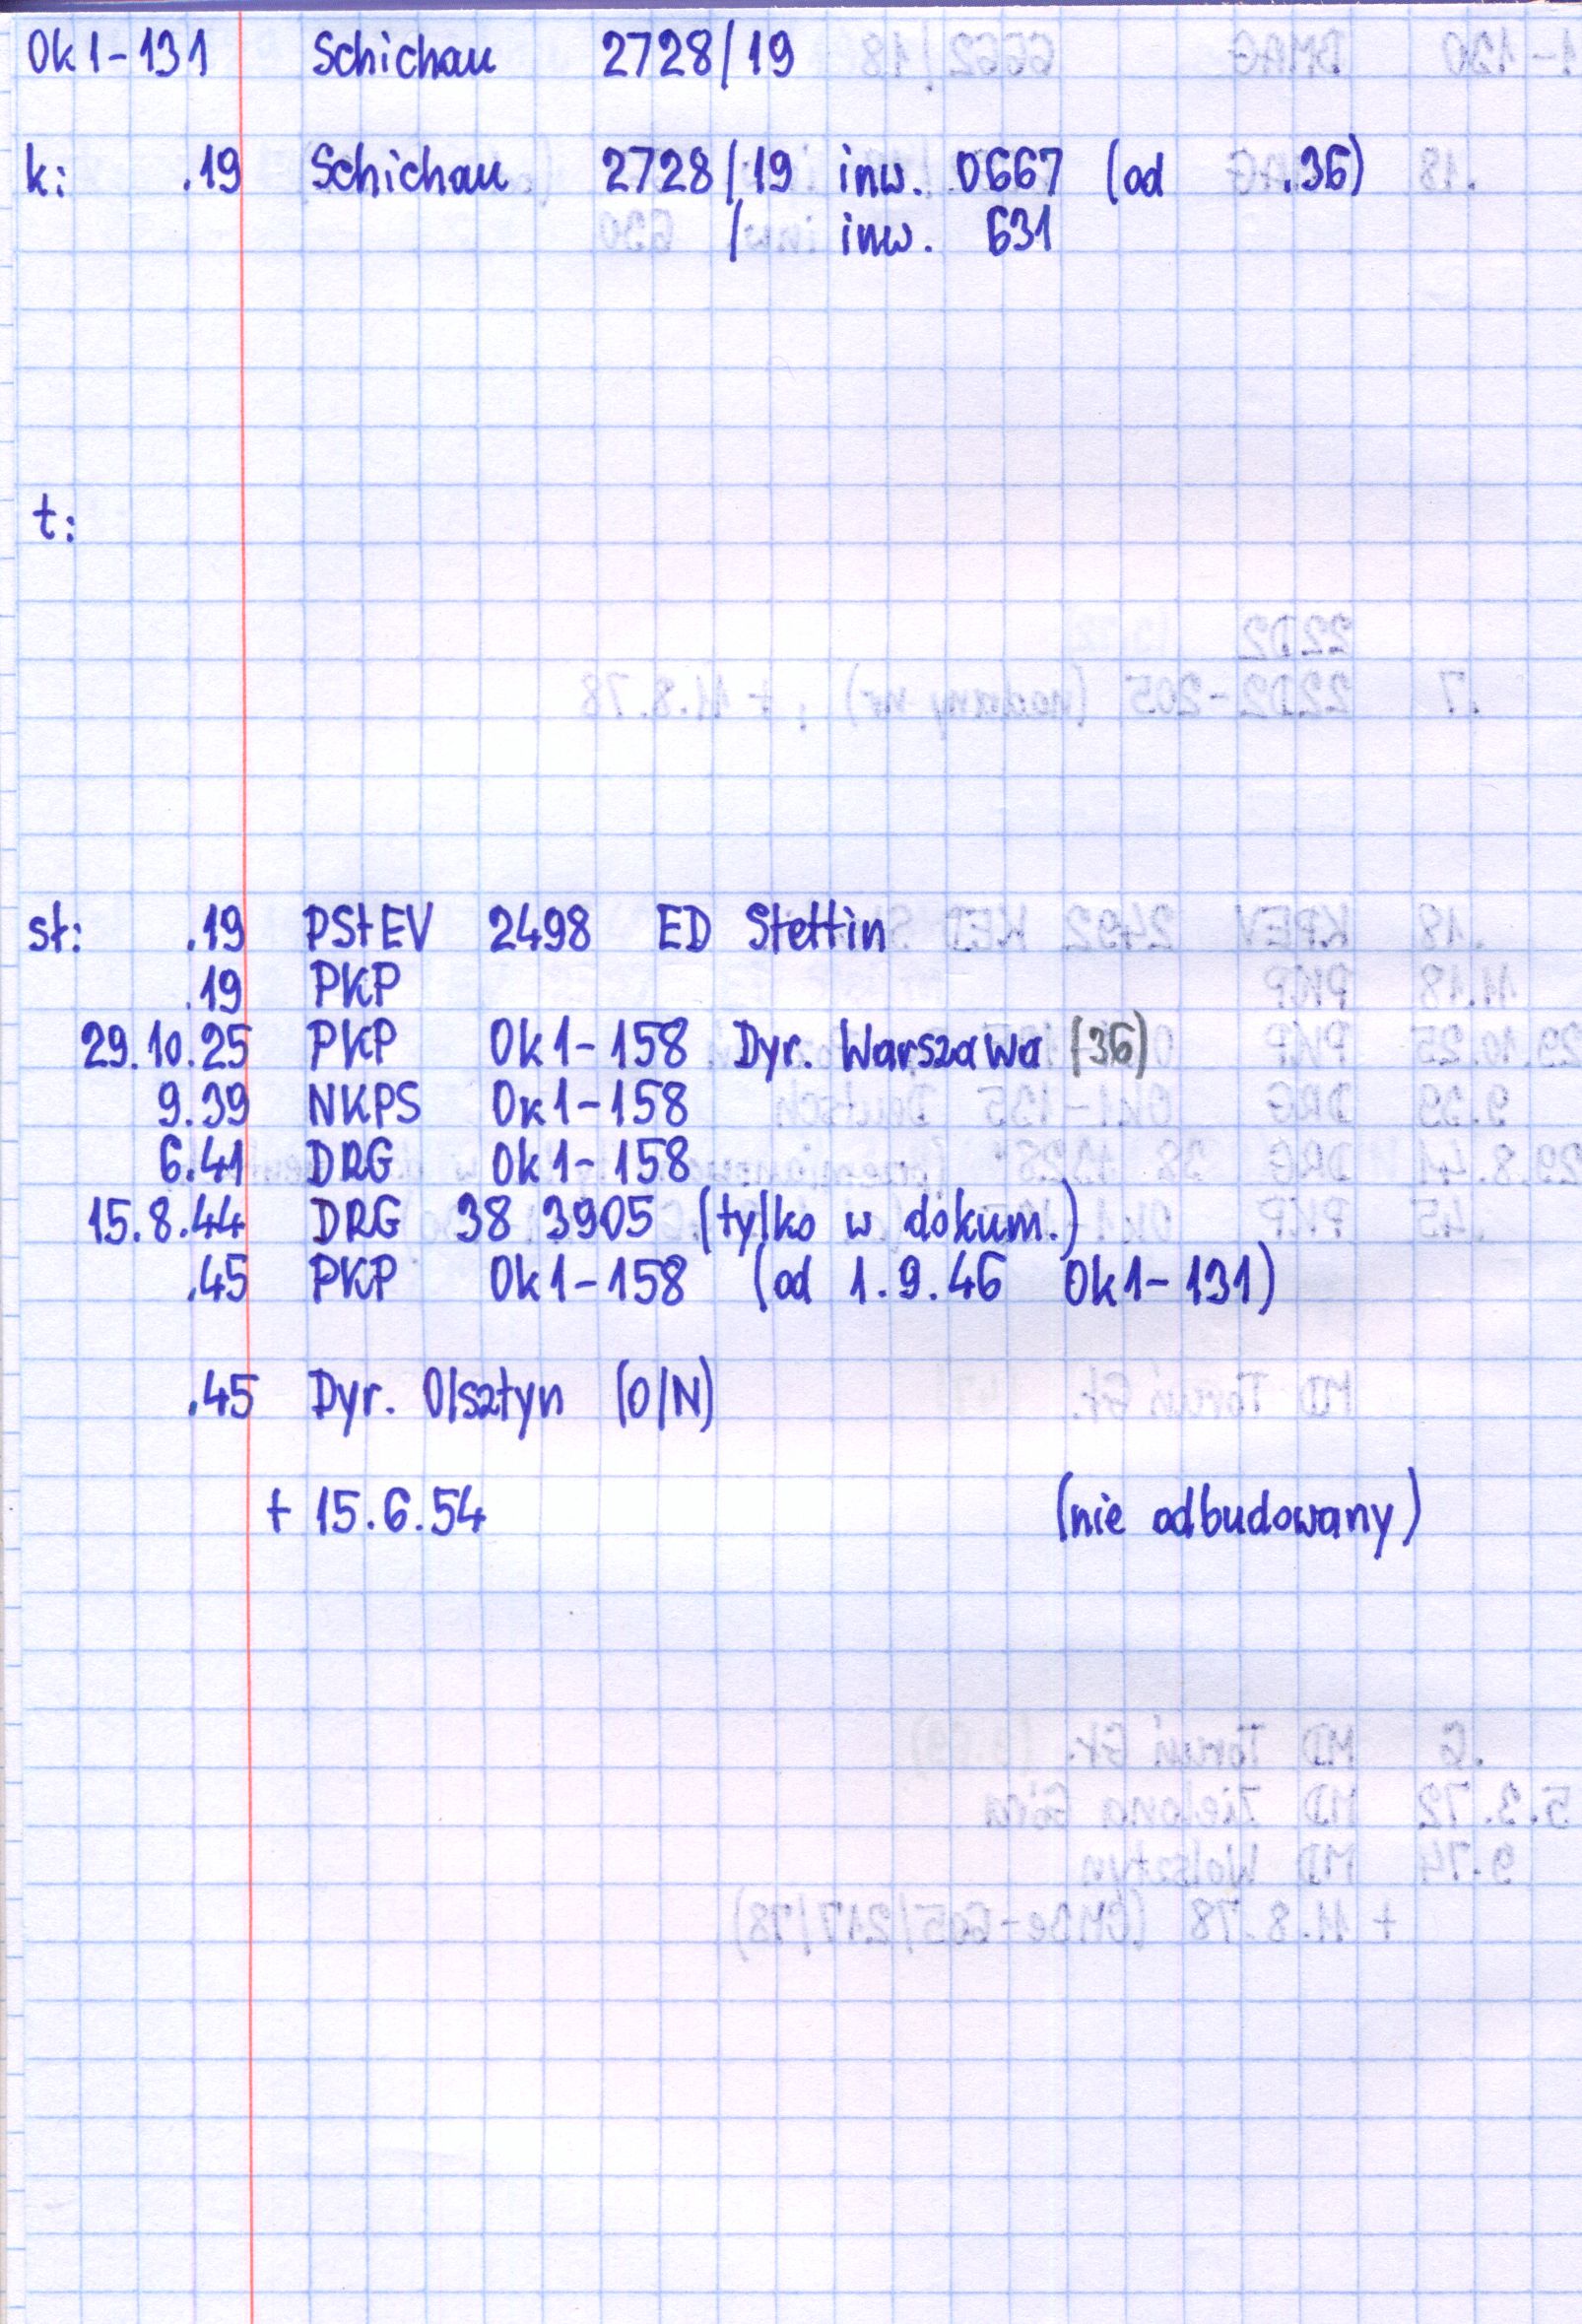 Ok1-131 Schichau 2728/19
k: .19 Schichau 2728/19 inw. 0667 (od .36)
/ inw. 631
t:
st: .19 PStEV 2498 ED Stettin
.19 PKP
29.10.25 PKP Ok1-158 Dyr. Warszawa (36)
9.39 NKPS Ок1-158
6.41 DRG Ok1-158
15.8.44 DRG 38 3905 (tylko w dokum.)
.45 PKP Ok1-158 (od 1.9.46 Ok1-131)
.45 Dyr. Olsztyn (O/N)
+ 15.6.54 (nie odbudowany)